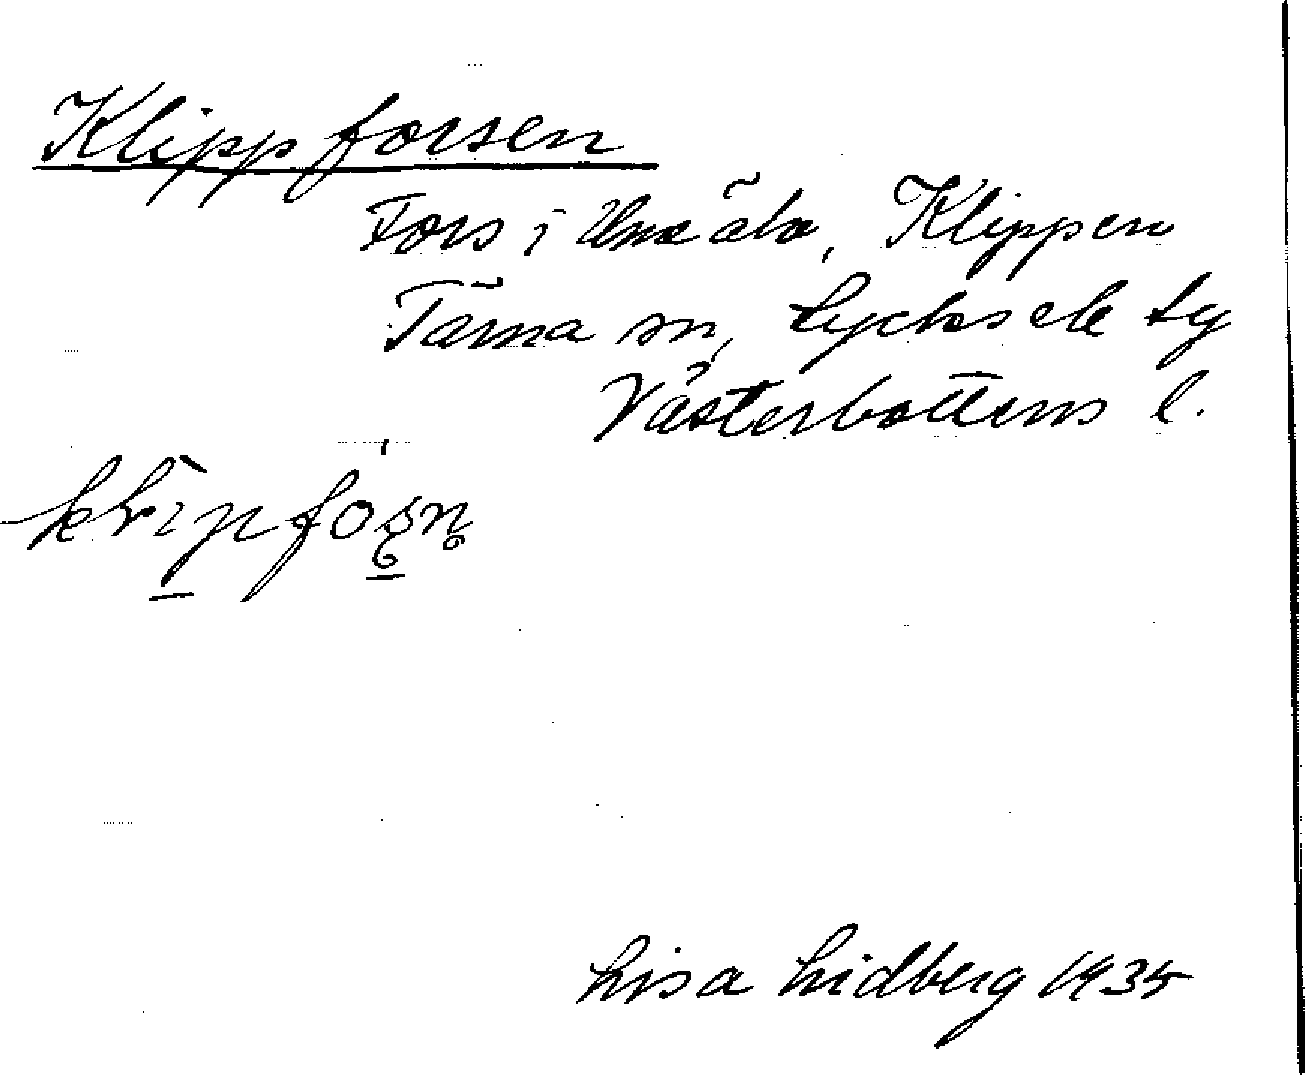 Klippforsen
Fors i Ume älv, Klippen
Tärna sn, Lycksele ty
Västerbottens l.
Lisa Lidberg 1935